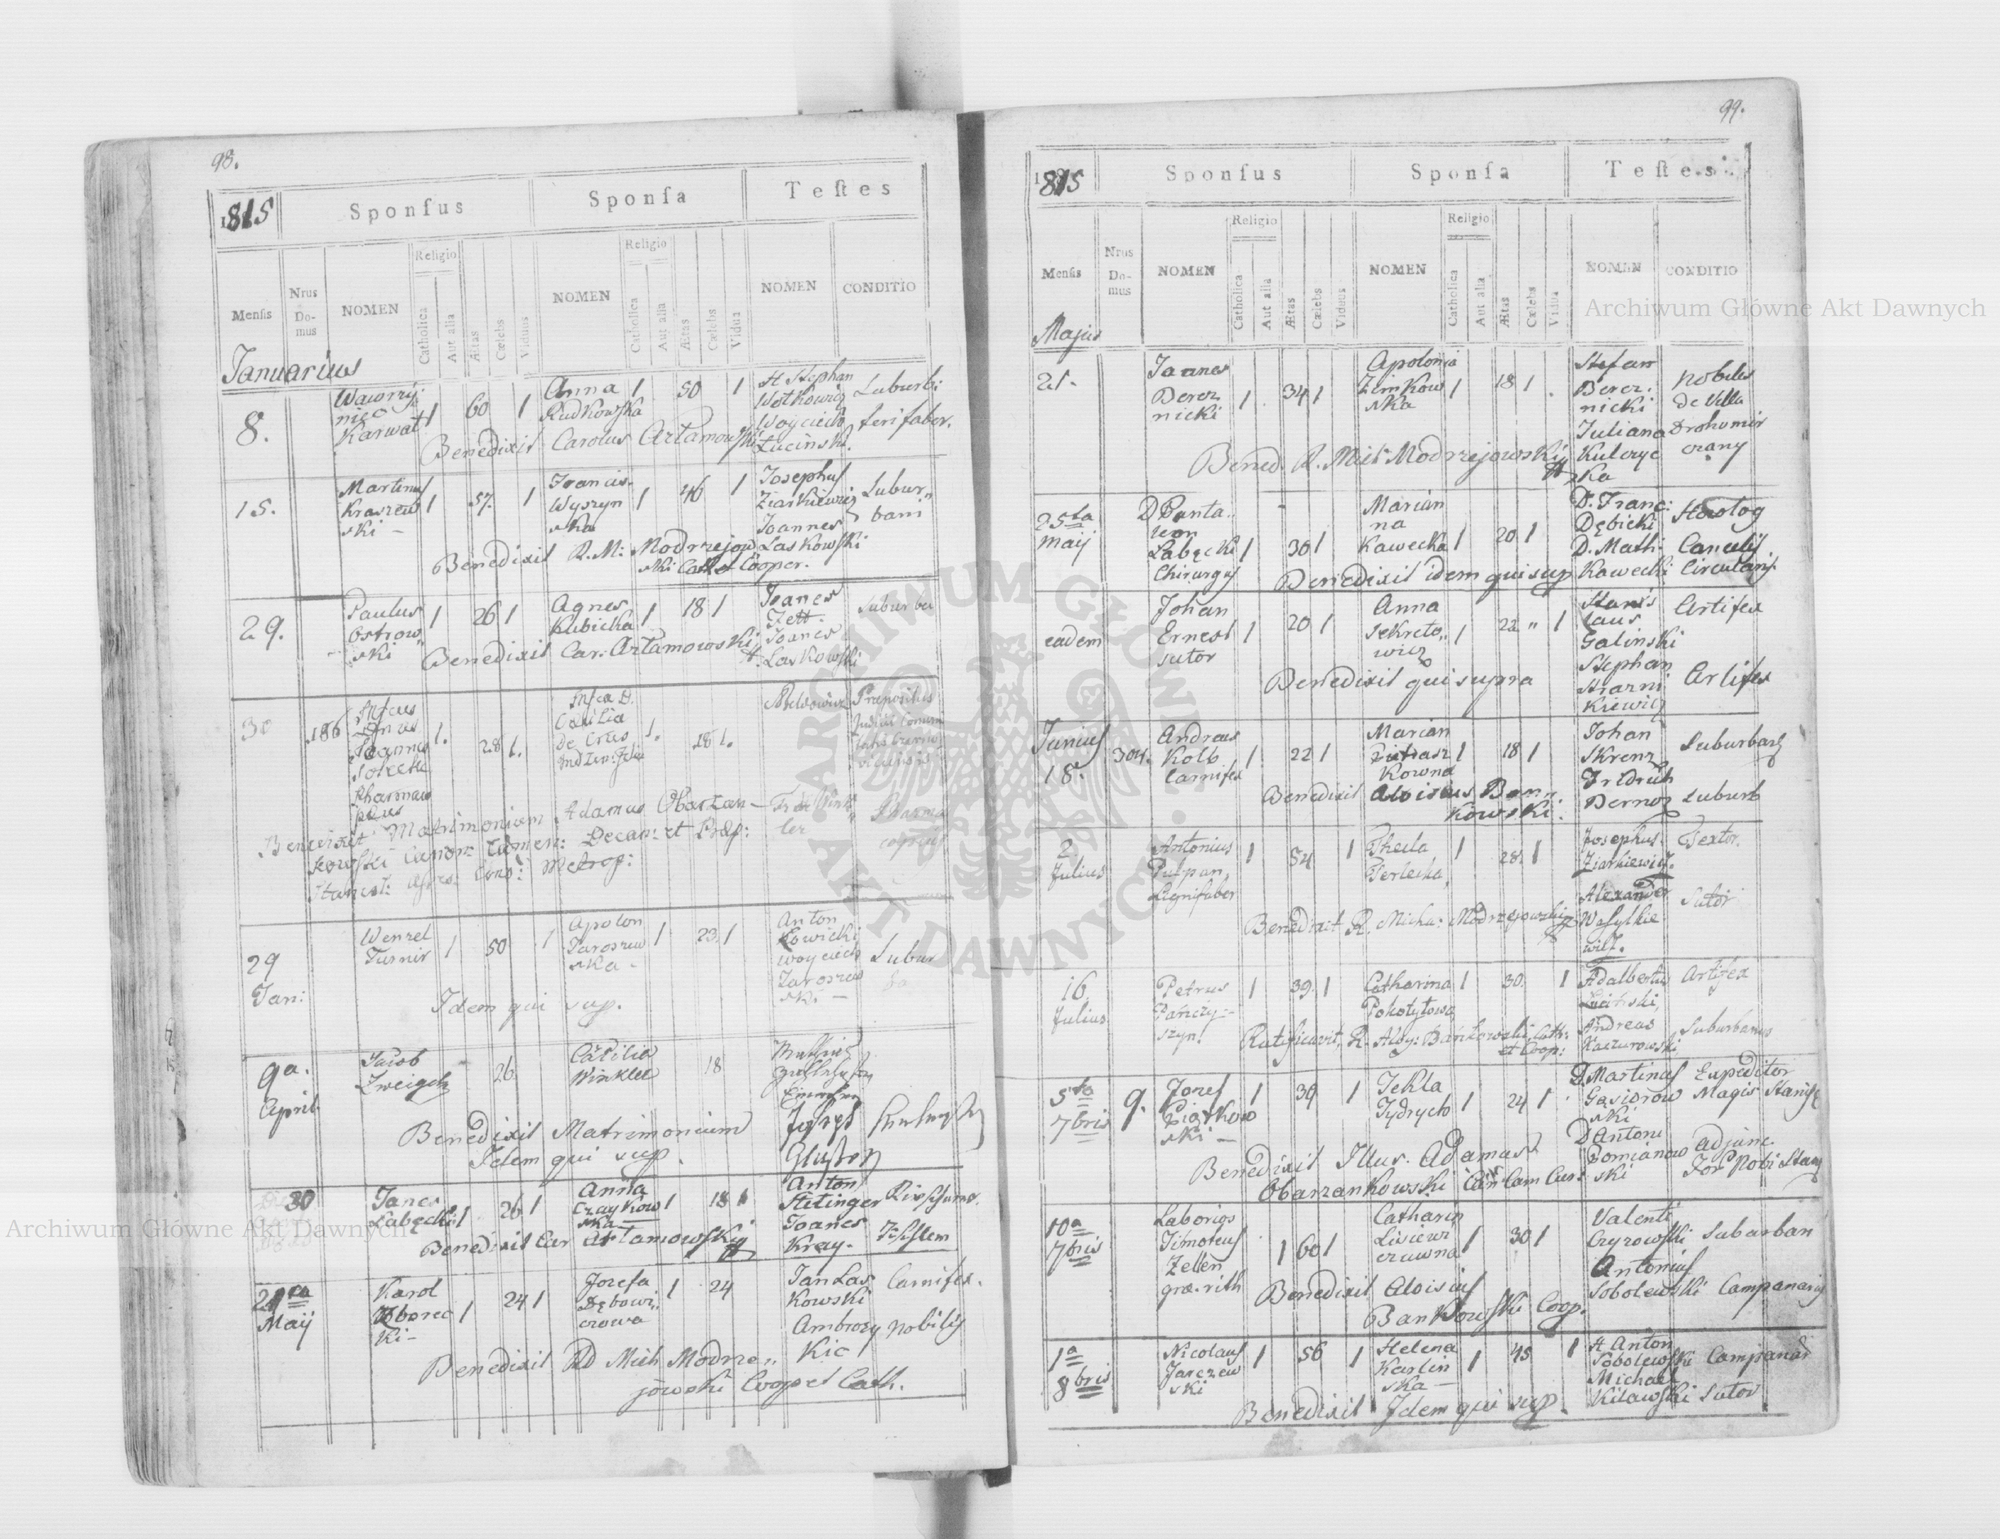 98.
1815
Sponsus
Sponsa
Testes
Mensis
Nrus Domus
NOMEN
Religio
Catholica
Aut alia
Ætas
Cœlebs
Viduus
NOMEN
Religio
Catholica
Aut alia
Ætas
Cœlebs
Vidua
NOMEN
CONDITIO
Januarius
8.
Wawrzy-
niec
Karwat
1
60
1
Anna
Rudkowska
1
50
1
Stephan
Wojciech
Łucinski
Suburb:
ferifaber.
Benedixit Carolus Artamowski
15.
Martinus
Kraszew
ski -
1
57.
1
Francis.
Wyszyn
ska
1
46
1
Josephus
Ziarkiewicz
Joannes
Laskowski
Subur"
bani
Benedixit R. M: Modrzejow
ski Cath et Cooper.
29.
Paulus
Ostrow"
ski
1
26 1
Agnes
Kubicka
1
18 1
Joanes
Fett.
Joanes
Laskowski
Suburba
Benedixit Car: Artamowski
30
186
Joannes
1.
28 1.
Cacilia
de Cres
1.
18 1.
Prepositus
Benedixit Matrimonium Adamus Obarzan-
kowski Canon: Camen: Decan: et Præp:
Metrop:
29
Jan:
Wenzel
Turnir
1
50
1
Apolon
Jaroszew
ska -
1
23 1
Anton
Łowicki
Woyciech
Jaroszew
ski -
Subur
ba
Idem qui sup.
9a.
April.
Jacob
Zweigels
26
Cäcilia
Winkler
18
Joseph
Benedixit Matrimonium
Idem qui sup.
30
Janes
Labęcki
1
26 1
Anna
Czaykow
ska
1
18 1
Anton
Stetinger
Joanes
Kray.
Benedixit Car Artamowski
21ma
Maij
Karol
Zborec
ki -
1
24 1
Jozefa
Dębowi
czowa
1
24
Jan Las
kowski
Ambrozy
Kic
Carnifex.
nobilis
Benedixit RD Mich Modrze"
jowski Coop et Cath.
99.
1815
Sponsus
Sponsa
Testes
Mensis
Nrus Domus
NOMEN
Religio
Catholica
Aut alia
Ætas
Cœlebs
Viduus
NOMEN
Religio
Catholica
Aut alia
Ætas
Cœlebs
Vidua
NOMEN
CONDITIO
Majus
21.
Joanes
Berez
nicki
1
34 1
Apolonia
Zimkow
ska
1
18 1
Stefan
Berez.
nicki
Juliana
Kulczyc
ka
Nobiles
de Villa
Drohomir
czany
Bened. R. Mich Modrzejowski
25ta
Maij
D Panta.
leon
Labęcki
Chirurgus
1
30 1
Marian
na
Kawecka
1
20 1
D. Franc:
Dębicki
D. Math.
Kawecki
Horolog
Cancelis
Circulari
Benedixit idem qui sup
eadem
Johan
Ernest
sutor
1
20 1
Anna
Sekreto"
wicz
1
22 " 1
Stanis
laus
Galinski
Stephan
Starni
kiewicz
Artifex
Artifex
Benedixit qui supra
Junius
18.
304.
Andreas
Kolb
Carnifex
1
22 1
Marian
Pietrasz
kowna
1
18 1
Johan
Skrenz
Fridrich
Bernoz
Suburban
Suburb
Benedixit Aloisius Ban"
kowski.
2
Julius
Antonius
Pulpan,
Lignifaber
1
54
1
Thecla
Terlecka,
1
28 1
Josephus.
Ziarkiewicz.
Alexander
Wasylkie
wicz.
Textor.
Sutor
Benedixit, R. Micha: Modrzejowski
16
Julius
Petrus
Pańczy-
szyn
1
39 1
Catharina
Pokotylowa
1
30
1
Adalbertus
Łucinski,
Andreas
Kaczurowski
Artifex
Suburbanus
Ratificavit, R. Aloy: Bańkowski, Cath:
et Coop:
5to
7bris
9.
Jozef
Piątkow
ski -
1
39
1
Tekla
Tydrycho
1
24 1
D. Martinus
Gąsiorow
ski
D Antoni
Domianow
ski
Expeditor
Magis Stanisl
Adjunc.
Benedixit Illus. Adamus
Obarzankowski Can Cam Cus:
10a
7bris
Laborios
Timoteus
Zellen
græ. rith
1 60 1
Catharin
Lisiewi
czuwna
1
30 1
Valenti
Czyzowski
Antonius
Sobolewski
Suburban
Campanarius
Benedixit Aloisius
Bankowski Coop.
1a
8bris
Nicolaus
Jarczew
ski
1
56
1
Helena
Karlin
ska -
1
45
1
Anton
Sobolewski
Michael
Kilawski
Campanar
Sutor
Benedixit Idem qui sup.
Archiwum Główne Akt Dawnych
Archiwum Główne Akt Dawnych
ARCHIWUM GŁÓWNE
AKT DAWNYCH